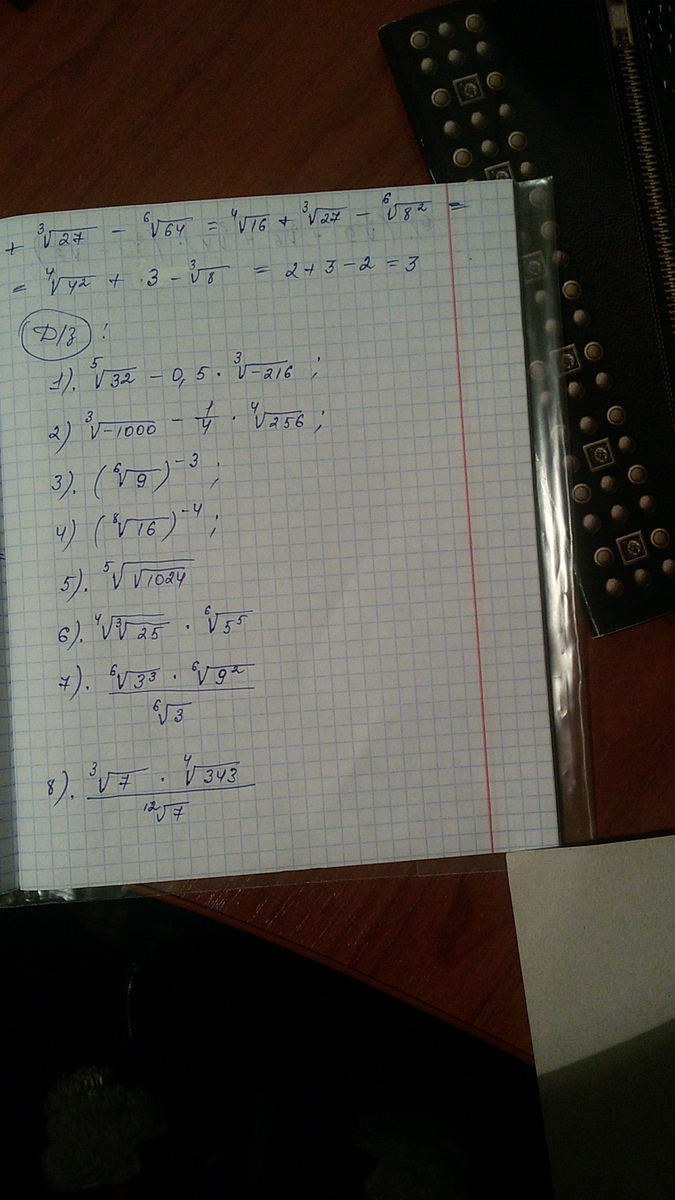 + ∛27 − ⁶√64 = ⁴√16 + ∛27 − ⁶√8² =
= ⁴√4² + ·3 − ∛8 = 2 + 3 − 2 = 3
Д/з :
1). ⁵√32 − 0,5 · ∛−216 ;
2) ∛−1000 − 1/4 · ⁴√256 ;
3). (⁶√9)⁻³ ;
4) (⁸√16)⁻⁴ ;
5). ⁵√√1024
6). ⁴√∛25 · ⁶√5⁵
7). (⁶√3³ · ⁶√9²) / ⁶√3
8). (∛7 · ⁴√343) / ¹²√7